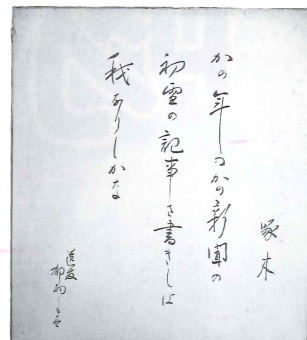 啄木
かの年のかの新聞の
初雪の記事を書きしは
我なりしかな